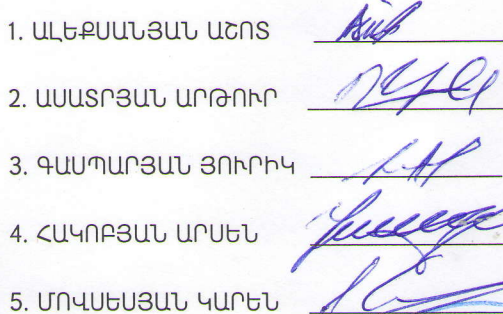 1. ԱԼԵՔՍԱՆՅԱՆ ԱՇՈՏ
2. ԱՍԱՏՐՅԱՆ ԱՐԹՈՒՐ
3. ԳԱՍՊԱՐՅԱՆ ՅՈՒՐԻԿ
4. ՀԱԿՈԲՅԱՆ ԱՐՍԵՆ
5. ՄՈՎՍԵՍՅԱՆ ԿԱՐԵՆ